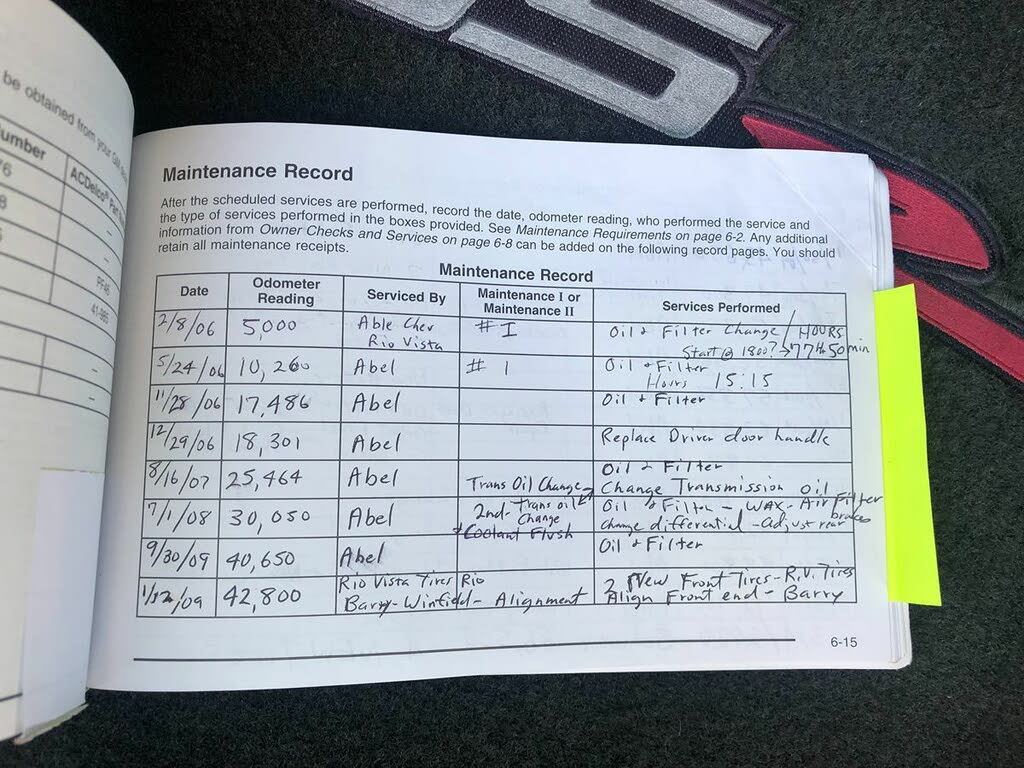 be obtained from your GM
umber
ACDelco® Part
76
8
PF46
41-985
Maintenance Record
After the scheduled services are performed, record the date, odometer reading, who performed the service and
the type of services performed in the boxes provided. See Maintenance Requirements on page 6-2. Any additional
information from Owner Checks and Services on page 6-8 can be added on the following record pages. You should
retain all maintenance receipts.
Maintenance Record
Date
Odometer
Reading
Serviced By
Maintenance I or
Maintenance II
Services Performed
2/8/06
5,000
Able Chev
Rio Vista
# I
Oil & Filter Change / HOURS
Start @ 1800? → 77 Hs 50 min
5/24/06
10,260
Abel
# 1
Oil & Filter
Hours 15:15
11/28/06
17,486
Abel
Oil & Filter
12/29/06
18,301
Abel
Replace Driver door handle
8/16/07
25,464
Abel
Trans Oil Change →
Oil & Filter
Change Transmission oil
7/1/08
30,050
Abel
2nd- Trans oil
Change
& Coolant Flush
Oil & Filter - WAX - Air Filter
change differential - adjust rear brakes
9/30/09
40,650
Abel
Oil & Filter
42,800
Rio Vista Tires Rio
Barry - Winfield - Alignment
2 New Front Tires - R.V. Tires
Align Front end - Barry
6-15